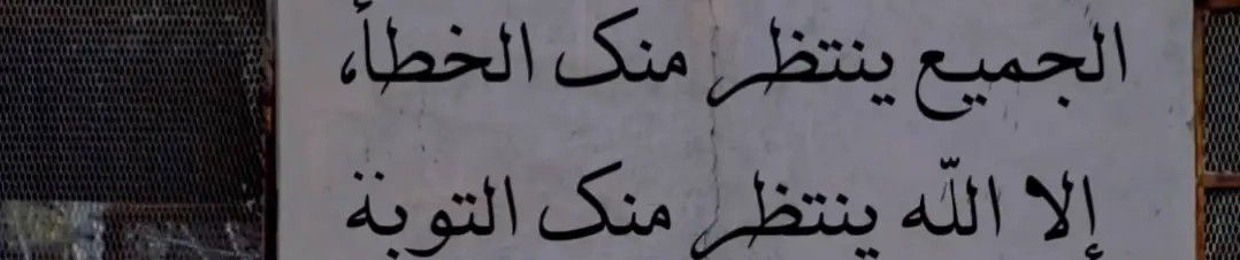 الجميع ينتظر منك الخطأ،
إلا الله ينتظر منك التوبة